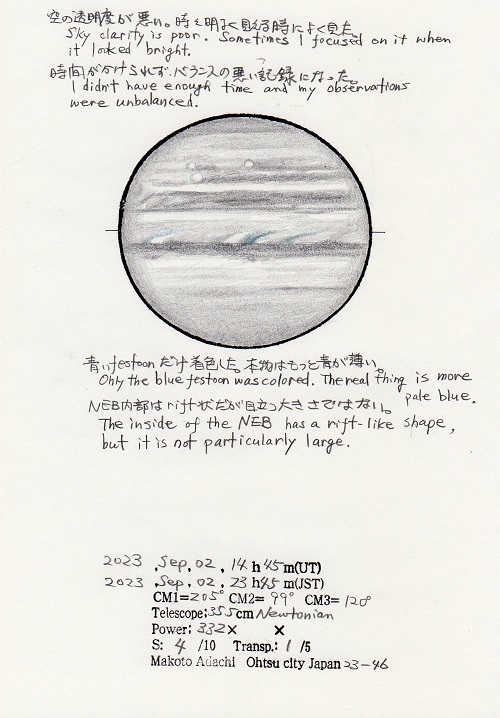 空の透明度が悪い。時々明るく見える時によく見た。
Sky clarity is poor. Sometimes I focused on it when
it looked bright.
時間がかけられず、バランスの悪い記録になった。
I didn't have enough time and my observations
were unbalanced.
青いfestoonだけ着色した。本物はもっと青が薄い。
Only the blue festoon was colored. The real thing is more
pale blue.
NEB内部はrift状だが目立つ大きさではない。
The inside of the NEB has a rift-like shape,
but it is not particularly large.
2023 ,Sep, 02, 14 h 45 m(UT)
2023 ,Sep, 02, 23 h 45 m(JST)
CM1=205° CM2= 99° CM3= 120°
Telescope;355cm Newtonian
Power; 332× ×
S: 4 /10 Transp.: 1 /5
Makoto Adachi Ohtsu city Japan 23-46